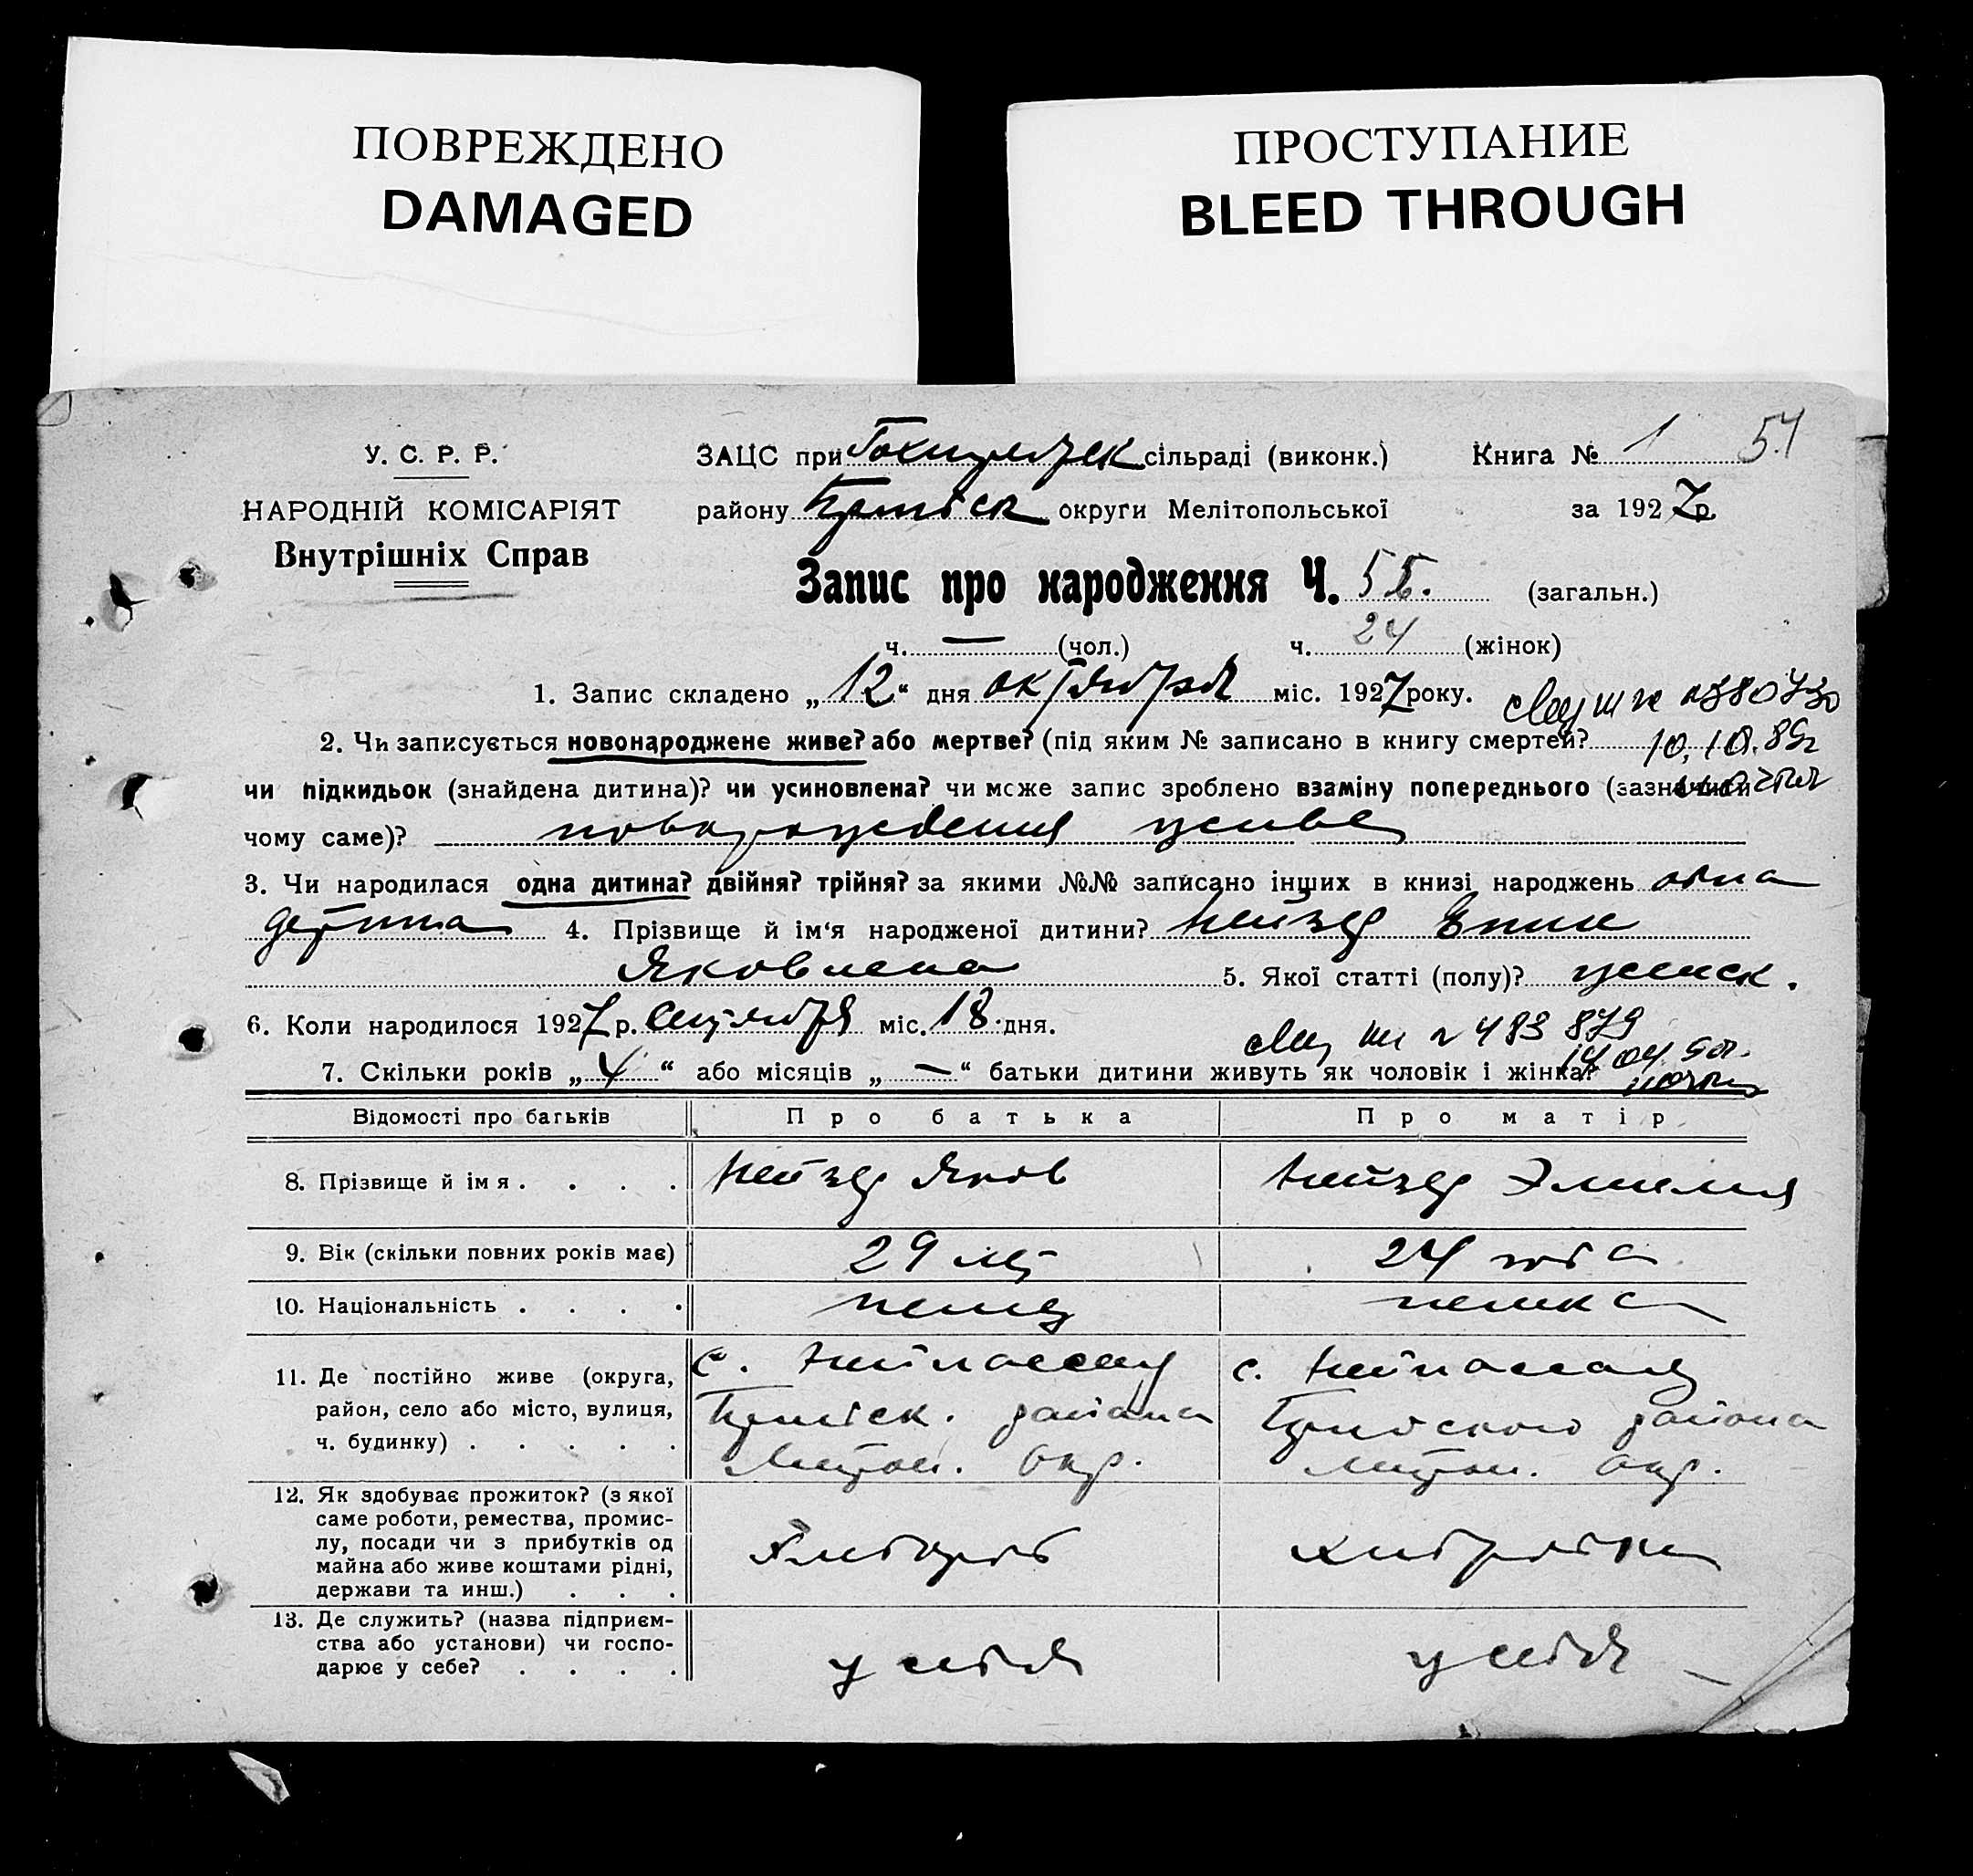 ПОВРЕЖДЕНО
DAMAGED
ПРОСТУПАНИЕ
BLEED THROUGH
У. С. Р. Р.
НАРОДНІЙ КОМІСАРІЯТ
Внутрішніх Справ
ЗАЦС при сільраді (виконк.) Книга № 1 51
району округи Мелітопольської за 1927 р.
Запис про народження Ч. 55. (загальн.)
ч. — (чол.) ч. 24 (жінок)
1. Запис складено „12“ дня октября міс. 1927 року.
2. Чи записується новонароджене живе? або мертве? (під яким № записано в книгу смертей? 10.10.89г
чи підкидьок (знайдена дитина)? чи усиновлена? чи може запис зроблено взаміну попереднього (зазначити
чому саме)? новорождения живе
3. Чи народилася одна дитина? двійня? трійня? за якими №№ записано інших в книзі народжень одна
детина 4. Прізвище й ім'я народженої дитини? Нейзер
Яковлена 5. Якої статті (полу)? женск.
6. Коли народилося 1927 р. сентября міс. 18 дня.
№ 483 879
7. Скільки років „4“ або місяців „—“ батьки дитини живуть як чоловік і жінка?
Відомості про батьків Про батька Про матір
8. Прізвище й імя . . . . Нейзер Яков Нейзер Эмилия
9. Вік (скільки повних років має) 29 лет 24 года
10. Національність . . . . немец немка
11. Де постійно живе (округа, район, село або місто, вулиця, ч. будинку) . . . . . с. Нейнассау района Мелитоп. Окр. с. Нейнассау района Мелитоп. Окр.
12. Як здобуває прожиток? (з якої саме роботи, ремества, промислу, посади чи з прибутків од майна або живе коштами рідні, держави та инш.) . . . Хлебороб
13. Де служить? (назва підприємства або установи) чи господарює у себе? . . . . у себя у себя